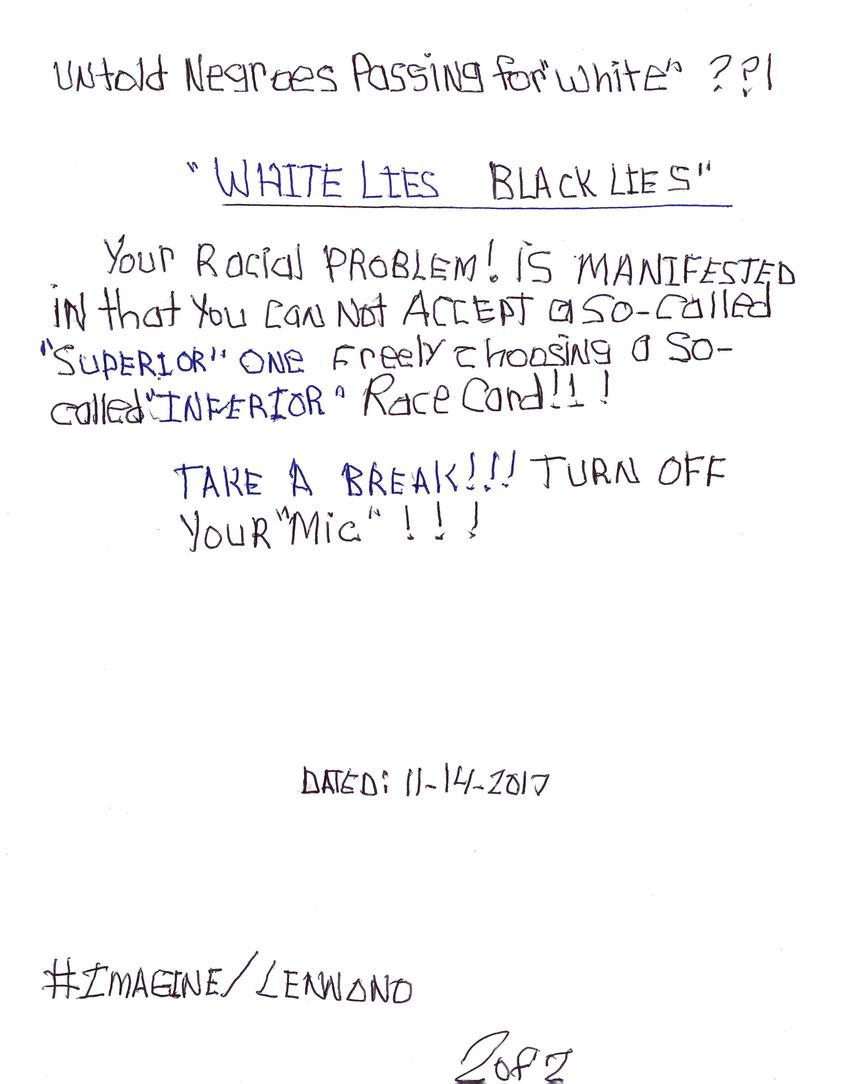 Untold Negroes Passing for "White" ??!
"WHITE LIES BLACK LIES"
Your Racial PROBLEM! IS MANIFESTED
in that You Can Not ACCEPT a So-Called
"SUPERIOR" ONE Freely Choosing a So-
called "INFERIOR" Race Card!!! !
TAKE A BREAK!!! TURN OFF
YOUR "Mic" ! ! !
DATED: 11-14-2017
#IMAGINE/LENWOND
2 of 2